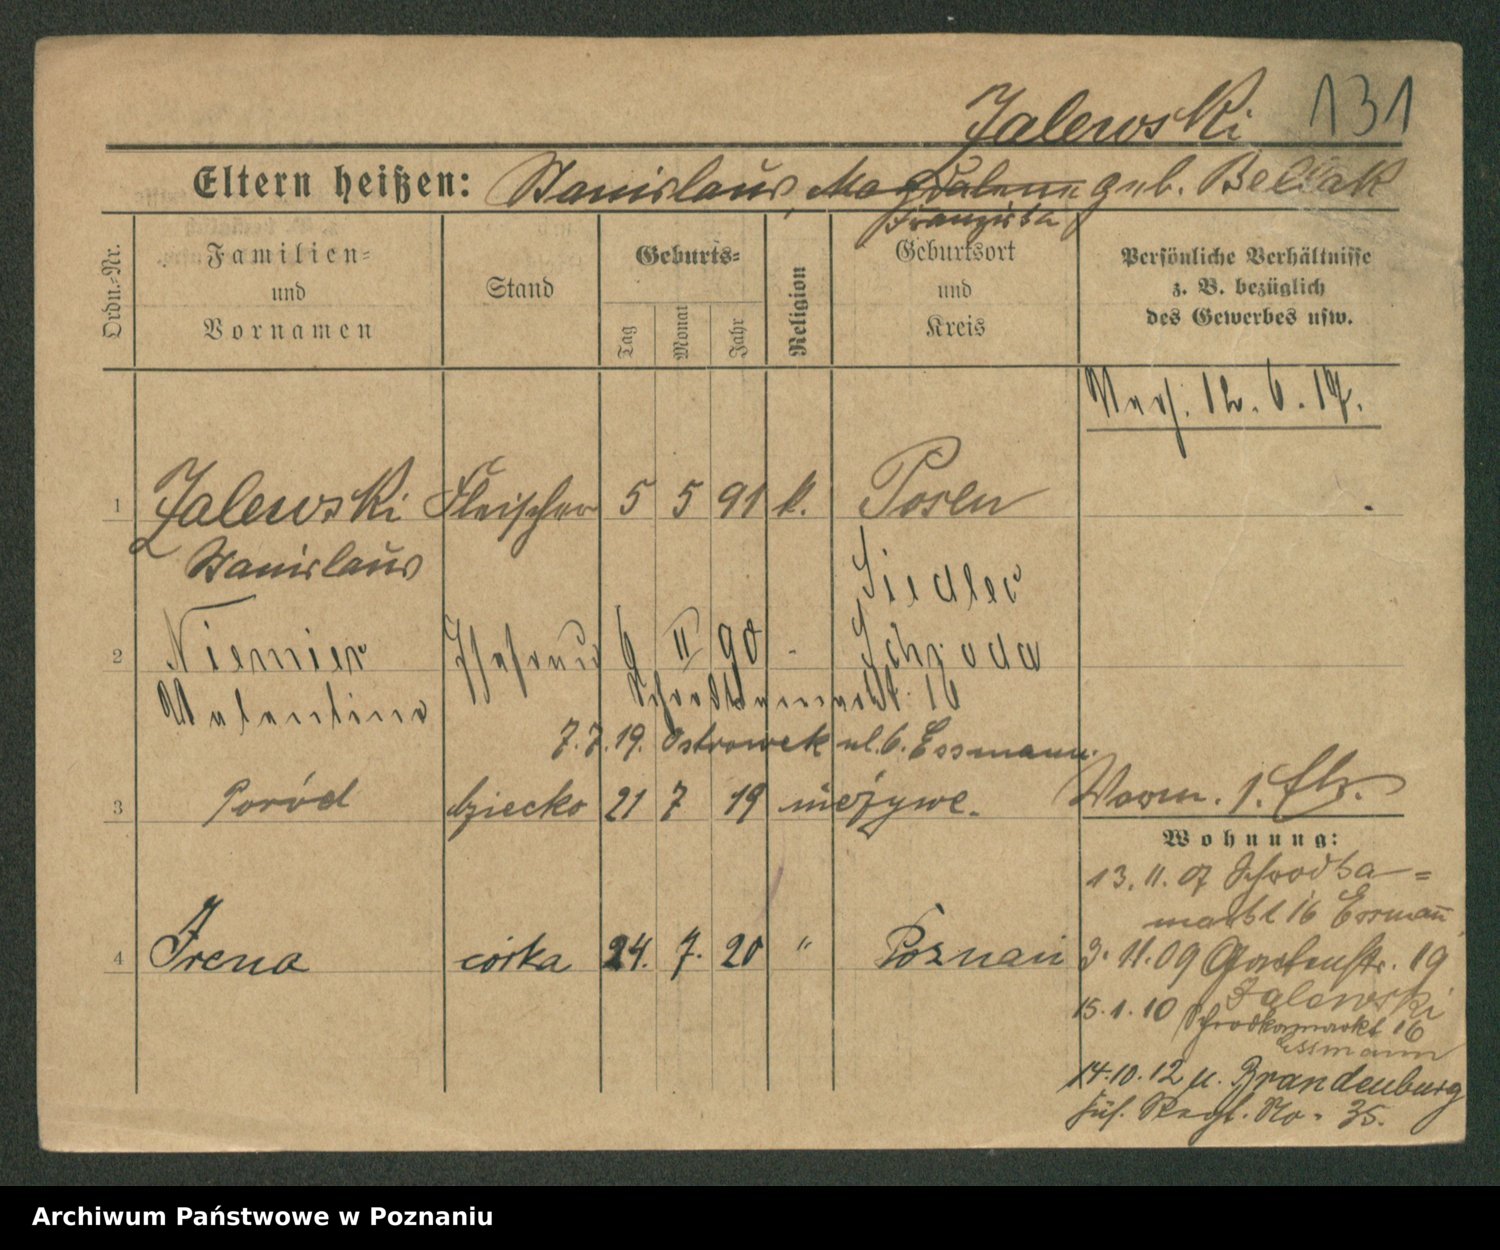 Jalewski 131
Eltern heißen: Stanislaus, Magdalena geb. Belzak
Franziska
Ordn.-Nr.
Familien-
und
Vornamen
Stand
Geburts-
Tag
Monat
Jahr
Religion
Geburtsort
und
Kreis
Persönliche Verhältnisse
z. B. bezüglich
des Gewerbes usw.
12. 6. 17.
1 Jalewski Fleischer 5 5 91 k. Posen
Stanislaus
Siedlec
2 Niemier Ehefrau 6 II 90 - Schroda
Valentina Schrodkamarkt 16
7.7.19. Ostrowek ul. 6. Essmann.
3 Poród dziecko 21 7 19 nieżywe.
Wohnung:
13.11.07 Schrodka=
markt 16 Essmann
4 Irena córka 24. 7. 20 " Poznań
3.11.09 Gartenstr. 19
Jalewski
15.1.10 Schrodkamarkt 16
Essmann
14.10.12 n. Brandenburg
Füs. Regt. No. 35.
Archiwum Państwowe w Poznaniu